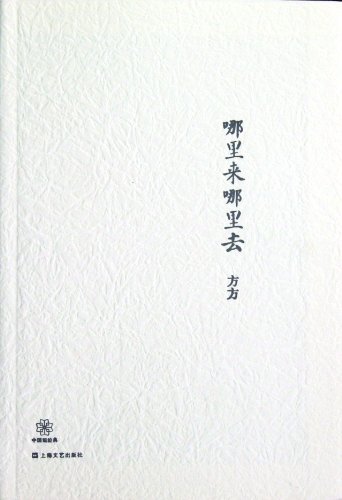 哪里来哪里去
方方
中国短经典
上海文艺出版社